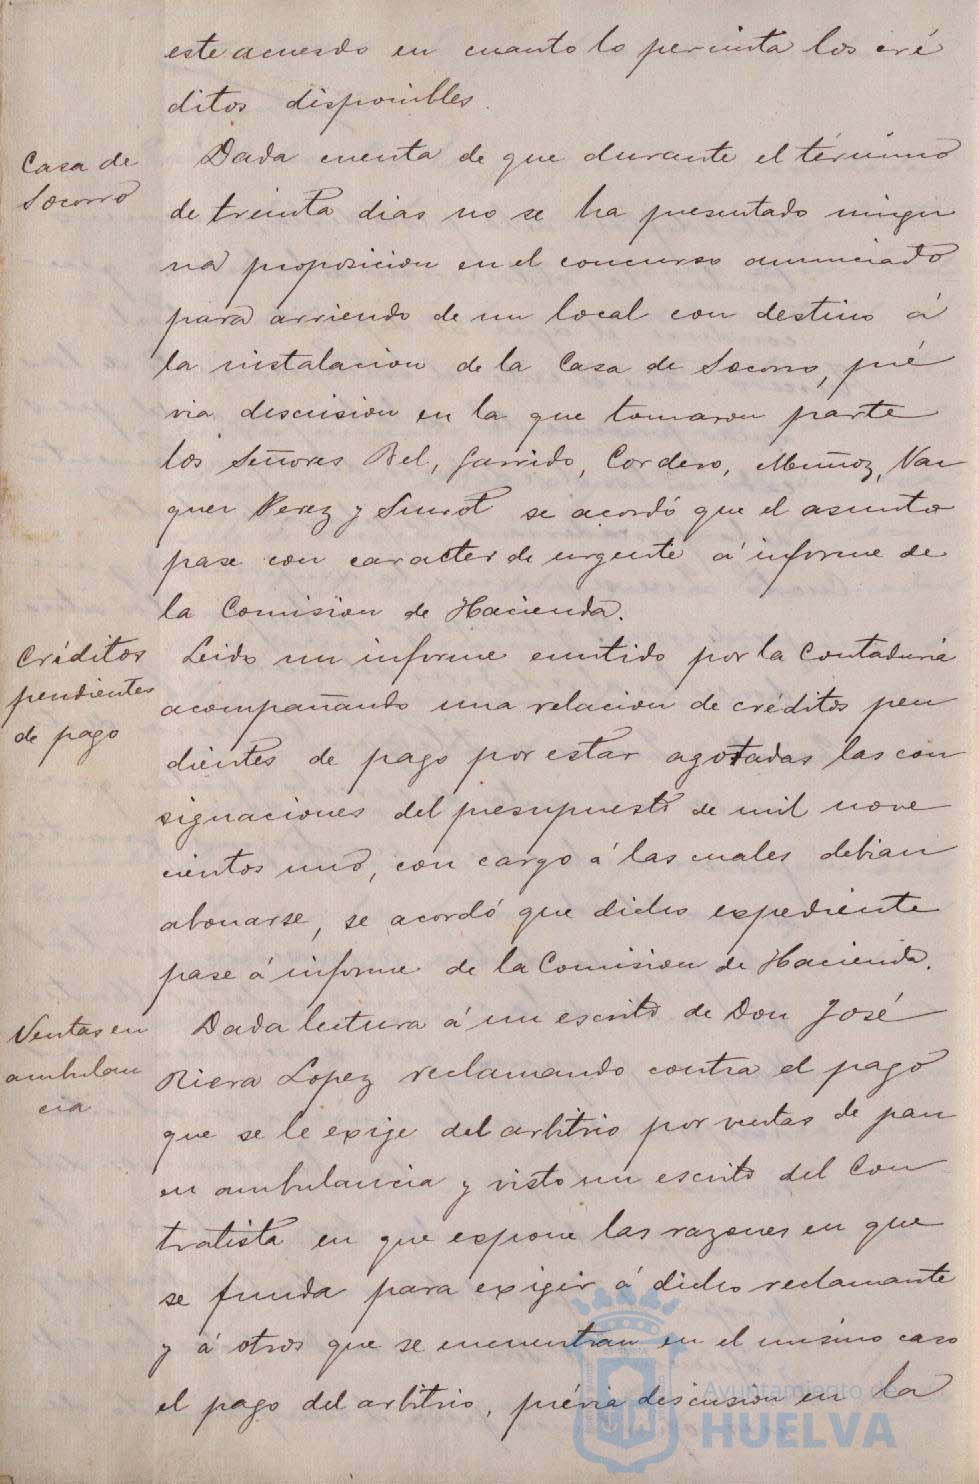 este acuerdo en cuanto lo permita los cré
ditos disponibles.
Casa de
Socorro
Dada cuenta de que durante el término
de treinta dias no se ha presentado ningu
na proposicion en el concurso anunciado
para arriendo de un local con destino á
la instalacion de la Casa de Socorro, pré
via discusion en la que tomaron parte
los Señores Bel, Garrido, Cordero, Muñoz, Vaz
quez Perez y se acordó que el asunto
pase con caracter de urgente á informe de
la Comision de Hacienda.
Créditos
pendientes
de pago
Leido un informe emitido por la Contaduria
acompañando una relacion de créditos pen
dientes de pago por estar agotadas las con
signaciones del presupuesto de mil nove
cientos uno, con cargo á las cuales debian
abonarse, se acordó que dicho expediente
pase á informe de la Comision de Hacienda.
Ventas en
ambulan
cia
Dada lectura á un escrito de Don José
Riera Lopez reclamando contra el pago
que se le exige del arbitrio por ventas de pan
en ambulancia y visto un escrito del Con
tratista en que expone las razones en que
se funda para exigir á dicho reclamante
y á otros que se encuentran en el mismo caso
el pago del arbitrio, prévia discusion en la
Ayuntamiento de
HUELVA